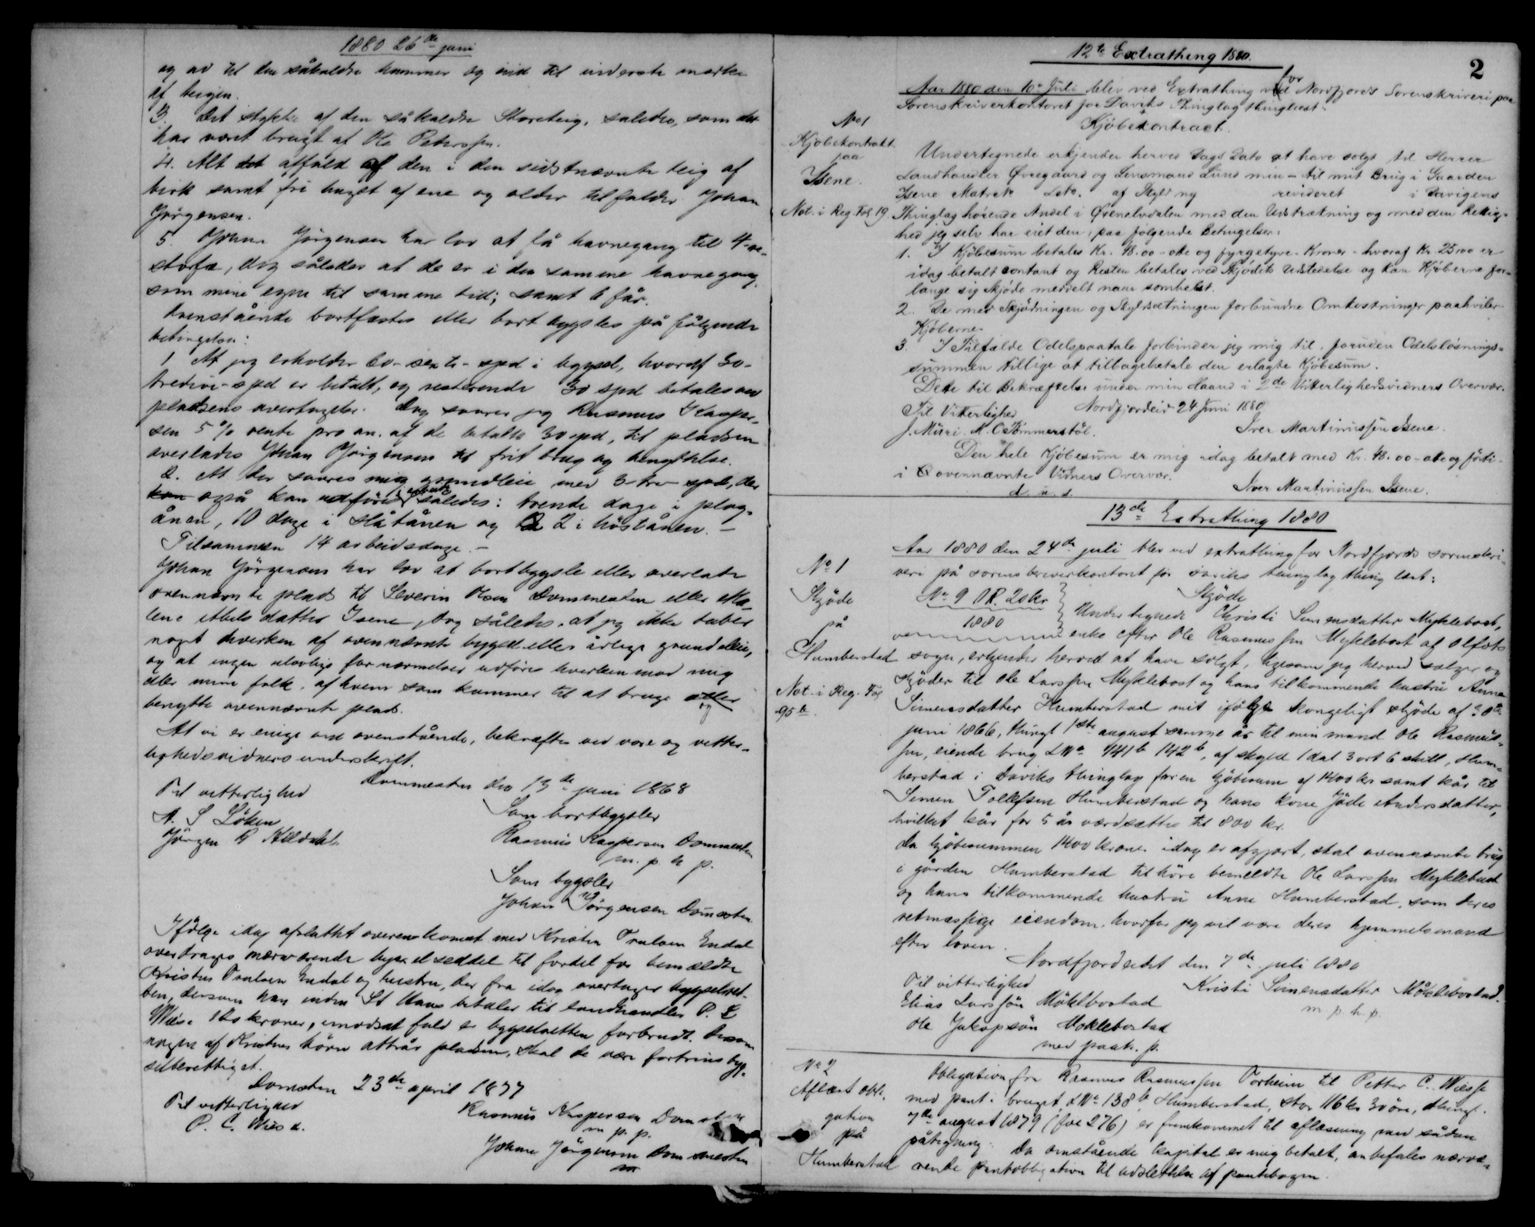 1880 26de juni
og ad til den såkaldte hammer og ind til inderste mærke
af teigen.
3. Det stykke af den såkaldte Storeteig, således, som det
har været brugt af Ole Peterssen.
4. Alt det affald af den i den sidstnævnte teig af
birk samt fri hugst af ene og older tilfalder Johan
Jörgensen.
5. Johan Jörgensen har lov at få havnegang til 4re
storfæ, dog således at de er i den samme havnegang
som mine egne til samme tid; samt 6 får.
Ovenstående bortfæstes eller bortbygsles på fölgende
betingelser:
1. At jeg erholder 60-sexti-spd i bygsel, hvoraf 30-
tredive-spd er betalt, og resterende 30 spd betales ved
pladsens overtagelse. Dog svarer jeg Rasmus Kasper-
sen 5 % rente pro an. af de betalte 30 spd, til pladsen
overlades Johan Jörgensen til frit brug og benyttelse.
2. At der svares mig grundleie med 3-tre-spd, der
også kan udföres i arbeide således: tvende dage i plog-
ånen, 10 dage i slåtånen og 2 i höstånen.-
Tilsammen 14 arbeidsdage.-
Johan Jörgensen har lov at bortbygsle eller overlade
ovennævnte plads til Severin Olsen Dommesten eller Ma-
lene datter Isene, dog således at jeg ikke taber
noget hverken af ovennævnt bygsel eller årlige grundleie,
og at ingen ulovlige fornærmelser udföres hverken mod mig
eller mine folk, af hvem som kommer til at bruge eller
og
benytte ovennævnt plads.
At vi er enige ved ovenstående, bekræftes ved vore og vitter-
lighedsvidners underskrift.
Dommesten den 13de juni 1868
Til vitterlighed
Som bortbygsler
A. S. Löken
Rasmus Kaspersen Dommesten
Jörgen A Alldal
m. p. h. p.
Som bygsler
Johan Jörgensen Domesten
Ifölge idag afsluttet overenskomst med Kristen Trulsen Endal
overdrages nærværende bygselseddel til fordel for bemældte
Kristen Trulsen Endal og hustru, der fra idag overtager bygselret-
ten, dersom han inden St Hans betaler til landhandler P. C
Wiese kroner, i modsat fald er bygselretten forbrudt. Dersom
nogen af Kristens börn attrår pladsen, skal de være fortrins byg-
selberettiget.
Domsten 23de april 1877
Til vitterlighed
Rasmus Kaspersen Domsten
P. C. Wiese.
m p. p.
Johan Jörgensen Dommesten

12te Extrathing 1880.
2
Aar 1880 den 10de Juli blev ved Extrathing for Nordfjords Sorenskriveri paa
Sorenskriverkontoret for Daviks Thinglag thinglæst:
No 1
Kjöbekontrakt
paa
Isene.
Not. i Reg Fol 19
Kjöbekontract.
Undertegnede erkjender herved Dags Dato at have solgt til Herrer
Landhandler Övregaard og Lensmand Lund min - til mit Brug i Gaarden
Isene Matr № Löb № af Skyld ny revideret i Davigens
Thinglag hörende Andel i Örenelvdalen med den Udstrætning og med den Rettig-
hed jeg selv har eiet den, paa folgende Betingelser:
1. I Kjöbesum betales Kr. 48.00-otte og fyrgetyve-Kroner-hvoraf Kr. 25.00 er
idag betalt contant og Resten betales ved Skjödets Udstedelse og kan Kjöberne for-
lange sig skjöde meddelt naar somhelst.
2. De med Skjödningen og Skyldsætningen forbundne Omkostninger paahviler
Kjöberne.
3. I Tilfælde Odelspaatale forbinder jeg mig til, foruden Odelslösnings-
summen tillige at tilbagebetale den erlagte Kjöbesum.
Dette til Bekræftelse under min Haand i 2de Vitterlighedsvidners Overvær.
Til Vitterlighed Nordfjordeid 24 Juni 1880
J. Müri. M. O. Hammerstöl. Iver Martinussen Isene.
Den hele Kjöbesum er mig idag betalt med Kr. 48.00-otte og förti-
i Ovennævnte Vidners Overvær.
d. u. s. Iver Martinussen Isene.

13de Extrathing 1880
Aar 1880 den 24de juli blev ved extrathing for Nordfjords sorenskri-
veri på sorenskriverkontoret for Daviks thinglag thinglæst:
No 1
Skjöde
på
Humberstad
Not. i Reg. Fol
95 b.
Skjöde
No. 9 OR. 20 kr
1880
Undertegnede Christi Simensdatter Myklebost,
enke efter Ole Rasmussen Myklebost af Olfots
sogn, erkjender herved at have solgt, ligesom jeg herved sælger og
skjöder til Ole Larssen Myklebost og hans tilkommende hustru Anne
Simensdatter Humberstad mit ifölge kongeligt skjöde af 30te
juni 1866, thingl 1ste august samme år til min mand Ole Rasmus-
sen, eiende brug LNo 141b 142b, af skyld 1 dal 3 ort 6 skill, Hum-
berstad i Daviks thinglag for en kjöbesum af 1400 kr samt kår til
Simen Tollefsen Humberstad og hans kone Jöde Andersdatter,
hvilket kår for 5 år værdsættes til 800 kr.
Da kjöbesummen 1400 kroner idag er afgjort, skal ovennævnte brug
i gården Humberstad tilhöre bemeldte Ole Larssen Myklebust
og hans tilkommende hustru Anne Humberstad, som deres
retmæssige eiendom, hvorfor jeg vil være deres hjemmelsmand
efter loven.
Nordfjordeidet den 7de juli 1880
Til vitterlighed
Kristi Simensdatter Möklebostad.
m. p. h. p.
Elias Larssön Möklbostad
Ole Jakopsön Moklebostad
med paah. p.

No 2
Aflæst obli-
gation
på
Humberstad
Obligation fra Rasmus Rasmussen Torheim til Petter C. Wiese
med pant i bruget LNo 138b Humberstad, stor 116 kr 30 öre, thingl.
7de august 1879 (fol 276) er fremkommet til aflæsning med sådan
påtegning. Da omstående kapital er mig betalt, anbefales nærvæ-
rende pantobligation til udslettelse af pantebogen.